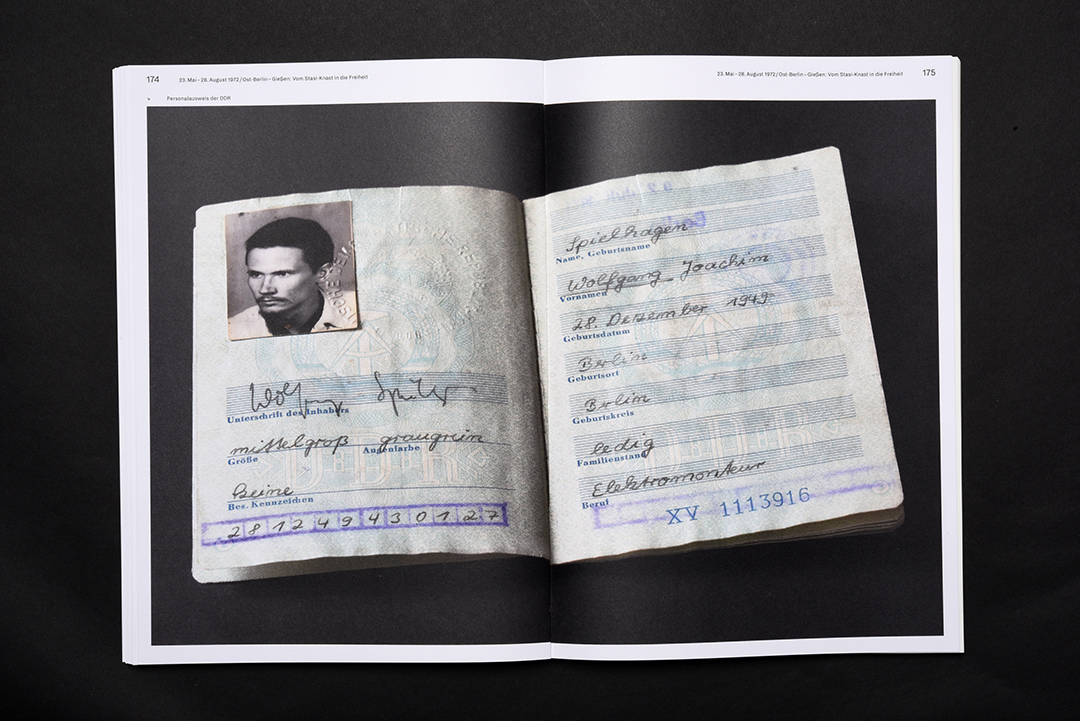 174
23. Mai – 28. August 1972 / Ost-Berlin – Gießen: Vom Stasi-Knast in die Freiheit
Personalausweis der DDR
Unterschrift des Inhabers
mittelgroß graugrün
Größe Augenfarbe
keine
Bes. Kennzeichen
281249430127
23. Mai – 28. August 1972 / Ost-Berlin – Gießen: Vom Stasi-Knast in die Freiheit
175
Spielhagen
Name, Geburtsname
Wolfgang Joachim
Vornamen
28. Dezember 1949
Geburtsdatum
Berlin
Geburtsort
Berlin
Geburtskreis
ledig
Familienstand
Elektromonteur
Beruf
XV 1113916